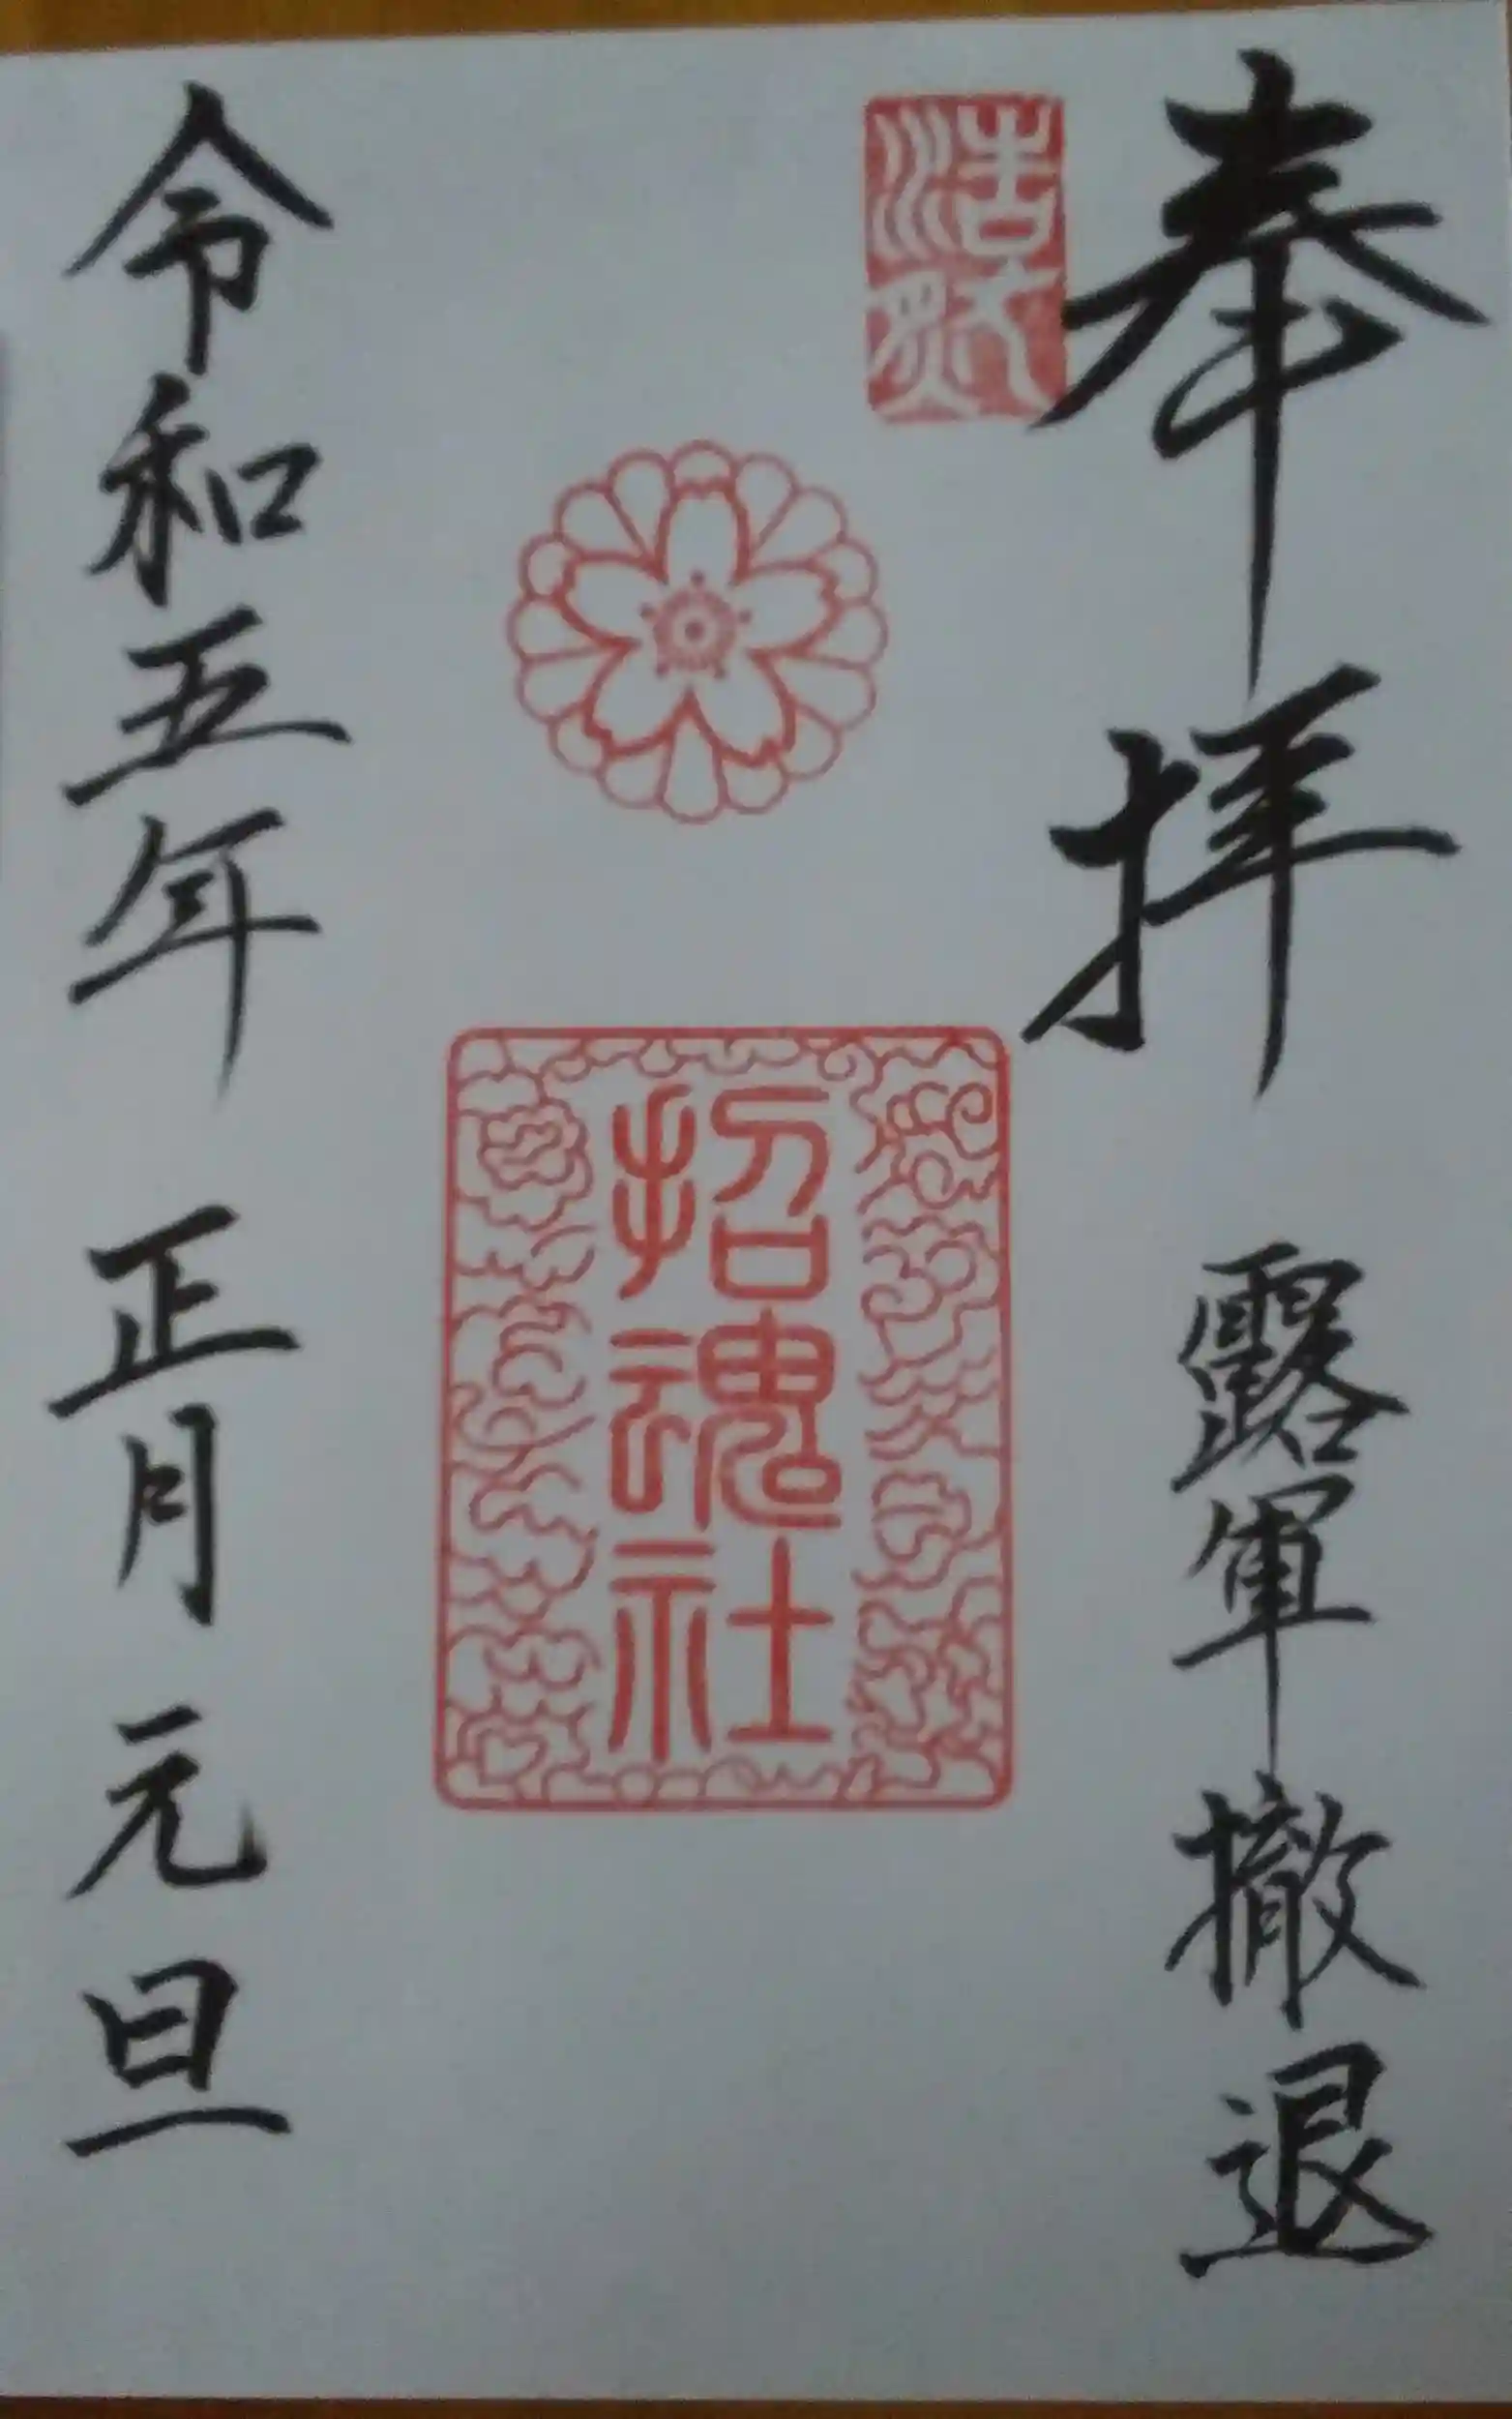 奉拝 露軍撤退
招魂社
令和五年 正月 元旦